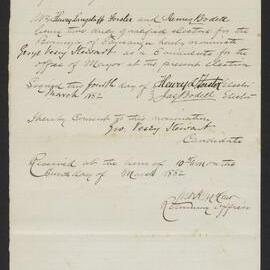 We Henry Langcliffe Forster and James Bodell
being two duly qualified electors for the
Borough of Tauranga hereby nominate
George Vesey Stewart as a Candidate for the
office of Mayor at the present election
Signed this fourth day of
March 1882
Elector
Jas Bodell Elector
I hereby Consent to this nomination
Geo. Vesey Stewart
Candidate
Received at the hour of 10 on the
day of March 1882
Returning Officer